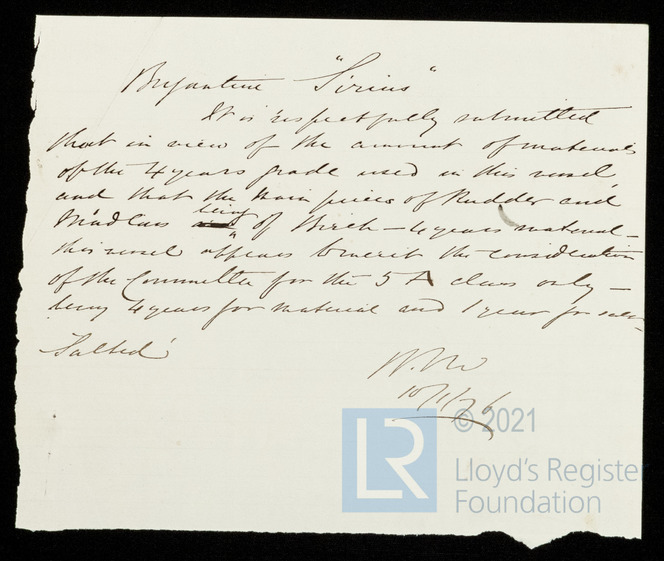 Brigantine "Sirius"
It is respectfully submitted
that in view of the amount of materials
of the 4 years grade used in this vessel,
and that the main piece of Rudder and
Windlass being of Birch - 4 years material -
this vessel appears to merit the consideration
of the Committee for the 5 A class only -
being 4 years for material and 1 year for
Salted.
10/1/76
© 2021
LR
Lloyd's Register
Foundation